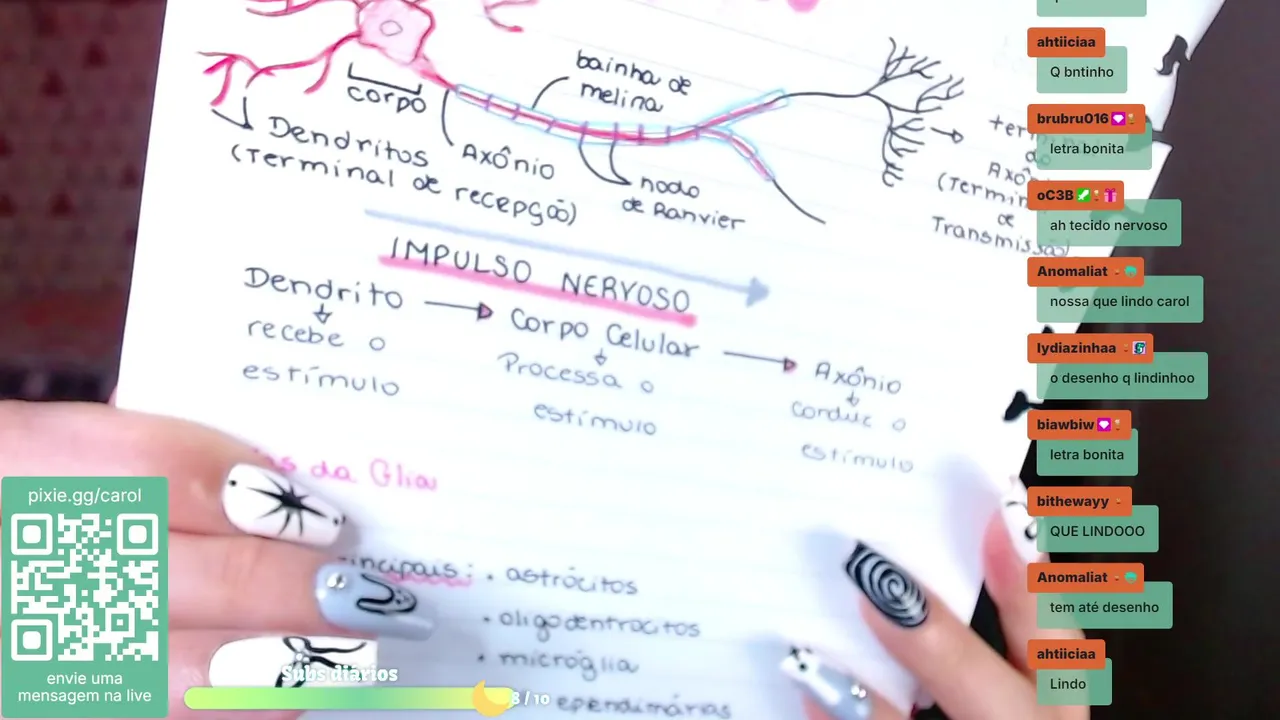 bainha de
melina
corpo
Dendritos
(Terminal de recepção)
Axônio
nodo
de Ranvier
Axô
(Termin
de
Transmissão)
IMPULSO NERVOSO
Dendrito
recebe o
estímulo
Corpo Celular
Processa o
estímulo
Axônio
conduz o
estímulo
da Glia
incipais: • astrócitos
• oligodentrocitos
• micróglia
ependimárias
pixie.gg/carol
envie uma
mensagem na live
Subs diários
8 / 10
ahtiiciaa
Q bntinho
brubru016
letra bonita
oC3B
ah tecido nervoso
Anomaliat
nossa que lindo carol
lydiazinhaa
o desenho q lindinhoo
biawbiw
letra bonita
bithewayy
QUE LINDOOO
Anomaliat
tem até desenho
ahtiiciaa
Lindo